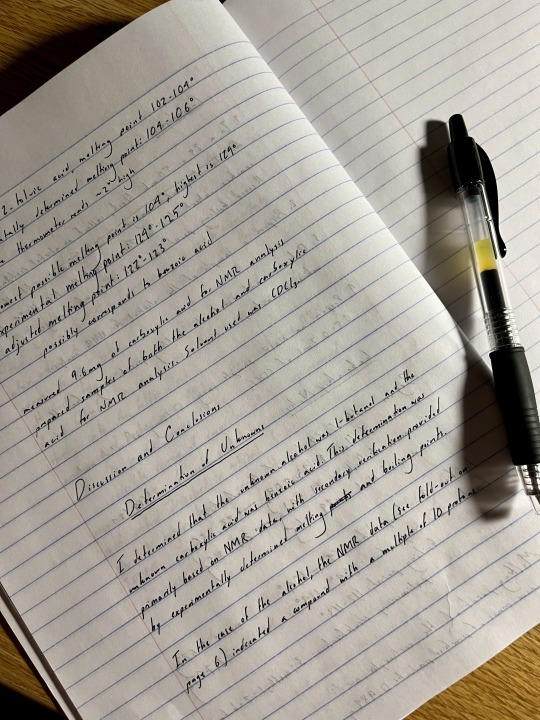 2-toluic acid, melting point 102-104°
determined melting point: 104-106°
thermometer reads ~2° high
possible melting point is 104°, highest is 129°
experimental melting point: 124°-125°
adjusted melting point: 122°-123°
possibly corresponds to benzoic acid
measured 9.6mg of carboxylic acid for NMR analysis
prepared samples of both the alcohol and carboxylic
acid for NMR analysis. Solvent used was CDCl3.
Discussion and Conclusions
Determination of Unknowns
I determined that the unknown alcohol was 1-butanol and the
unknown carboxylic acid was benzoic acid. This determination was
primarily based on NMR data, with secondary verification provided
by experimentally determined melting and boiling points.
In the case of the alcohol, the NMR data (see fold-out on
page 6) indicated a compound with a multiple of 10 protons.